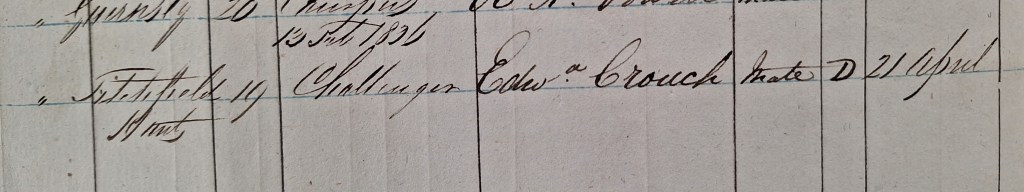 " Guernsey 20
13 Feb 1836
" Titchfield 19 Challenger Edwᵈ Crouch Mate D 21 April
Hants